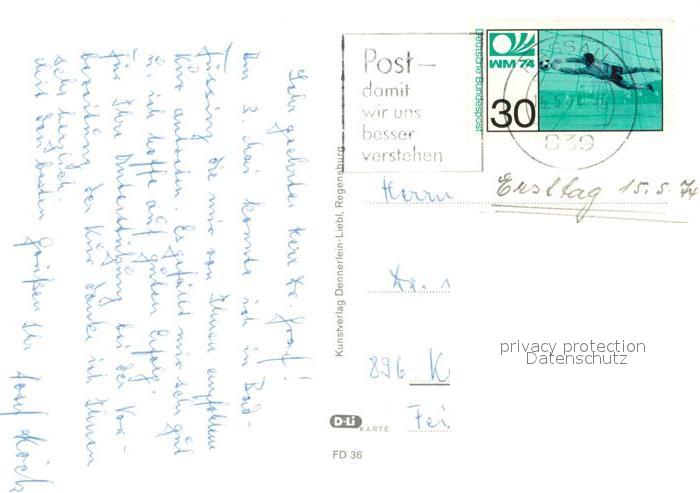 Sehr geehrter Herr Dr. Graf!
Am 2. Mai konnte ich in Bad-
Füssing die mir von Ihnen empfohlene
Kur antreten. Es gefällt mir sehr gut
u. ich hoffe auf guten Erfolg.
Für Ihre Unterstützung bei der Vor-
bereitung der Kur danke ich Ihnen
sehr herzlich
mit den besten Grüßen Ihr Josef
Post-
damit
wir uns
besser
verstehen
WM 74
30
Deutsche Bundespost
839
Herrn
Ersttag 15.5.74
Dr.
896. K
Fei
privacy protection
Datenschutz
Kunstverlag Dennerlein-Liebl, Regensburg
D-Li
KARTE
FD 36